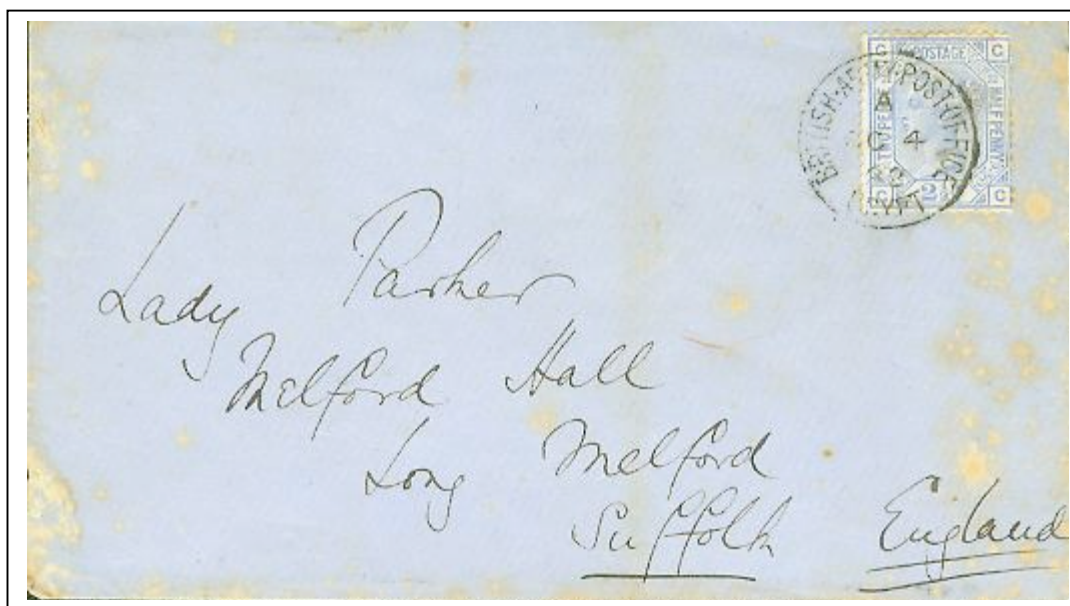 POSTAGE
HALFPENNY
BRITISH·ARMY·POST·OFFICE
A
4
EGYPT
Lady Parker
Melford Hall
Long Melford
Suffolk England